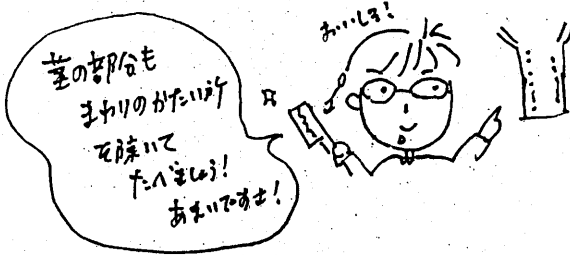 茎の部分も
まわりのかたい所
を除いて
たべましょう!
あまいですよ!
おいしそ!